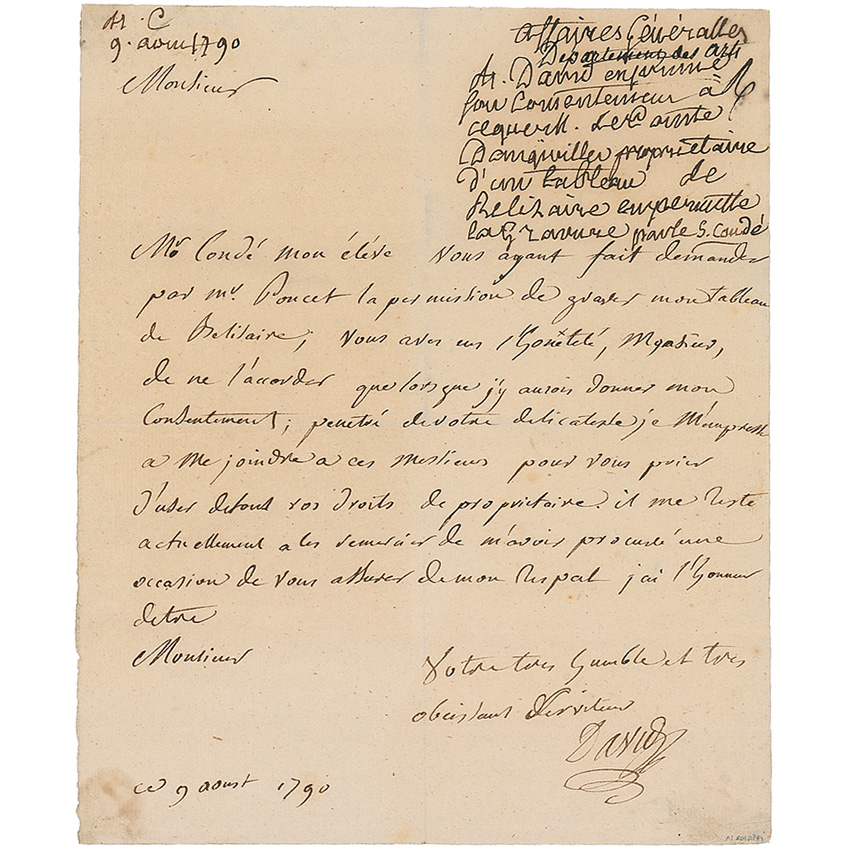 M. C
9. aoust 1790
Monsieur
affaires Généralles
Departement des arts
M. David exprime
son Consentement à
ceque M. le Comte
Dangiviller proprietaire
d'un tableau de
Belizaire en permette
la Gravure par le S. Condé
Mr Condé mon élève vous ayant fait demander
par mr. Poncet la permission de graver mon tableau
de Belisaire; vous aves eus l'honêteté, Monsieur,
de ne l'accorder que lorsque j'y aurois donner mon
Consentement; penetré de votre delicatesse je M'empresse
a me joindre a ces messieurs pour vous prier
d'user de tout vos droits de proprietaire. il me reste
actuellement a les remercier de m'avoir procurée une
occasion de vous assurer de mon respect j'ai l'honneur
detre
Monsieur
Votre tres humble et tres
obeissant serviteur
David
ce 9 aoust 1790